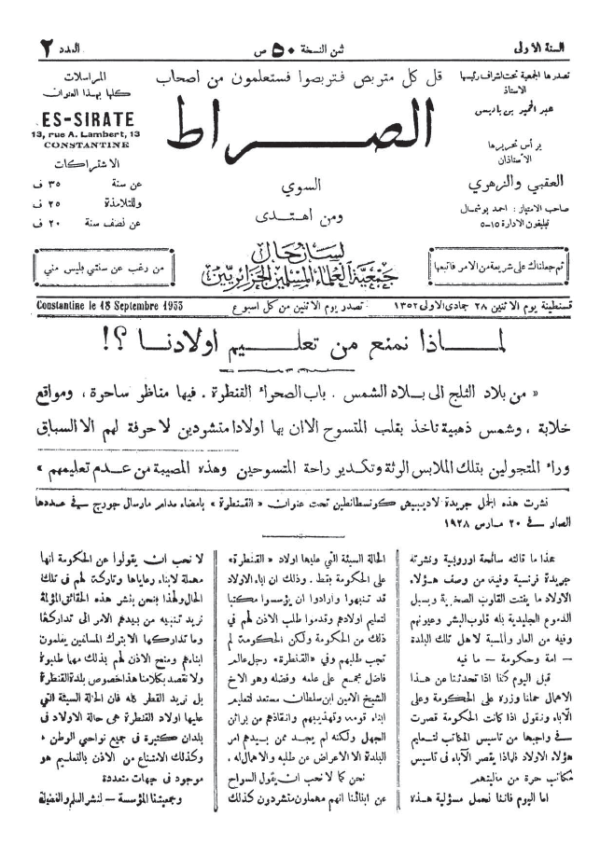 السنة الاولى
ثمن النسخة ٥٠ ص
العدد ٢
تصدرها الجمعية تحت اشراف رئيسها
الاستاذ
عبد الحميد بن باديس
برأس تحريرها
الاستاذان
العقبي والزهري
صاحب الامتياز : احمد بوشمال
تيليفون الادارة ١٥-٥
قل كل متربص فتربصوا فستعلمون من اصحاب
الصراط
السوي
ومن اهتدى
لسان حال
جمعية العلماء المسلمين الجزائريين
المراسلات
كلها بهذا العنوان
ES-SIRATE
13, rue A. Lambert, 13
CONSTANTINE
الاشتراكات
عن سنة ٣٥ ف
وللتلامذة ٢٥ ف
عن نصف سنة ٢٠ ف
ثم جعلناك على شريعة من الامر فاتبعها
من رغب عن سنتي فليس مني
قسنطينة يوم الاثنين ٢٨ جمادى الاولى ١٣٥٢
تصدر يوم الاثنين من كل اسبوع
Constantine le 18 Septembre 1933
لماذا نمنع من تعليم اولادنا ؟!
« من بلاد الثلج الى بلاد الشمس . باب الصحراء القنطرة . فيها مناظر ساحرة ، ومواقع
خلابة ، وشمس ذهبية تاخذ بقلب المتسوح الا ان بها اولادا متشردين لا حرفة لهم الا السباق
وراء المتجولين بتلك الملابس الرثة وتكدير راحة المتسوحين وهذه المصيبة من عدم تعليمهم »
نشرت هذه الجمل جريدة لاديبيش كونسطانطين تحت عنوان « القنطرة » بامضاء مدام مارسال جورج في عددها
الصادر في ٢٠ مارس ١٩٢٨
هذا ما قالته سائحة اوروبية ونشرته
جريدة فرنسية وفيه من وصف هؤلاء
الاولاد ما يفتت القلوب الصخرية ويسبل
الدموع الجليدية بله قلوب البشر وعيونهم
وفيه من العار والمسبة لاهل تلك البلدة
— امة وحكومة — ما فيه
قبل اليوم كنا اذا تحدثنا عن هذا
الاهمال حملنا وزره على الحكومة وعلى
الآباء ونقول اذا كانت الحكومة قصرت
في واجبها من تاسيس المكاتب لتعليم
هؤلاء الاولاد فلماذا يقصر الآباء في تاسيس
مكاتب حرة من ماليتهم
اما اليوم فاننا نحمل مسؤلية هذه
الحالة السيئة التي عليها اولاد « القنطرة»
على الحكومة فقط . وذلك ان اباء الاولاد
قد تنبهوا وارادوا ان يؤسسوا مكتبا
لتعليم اولادهم وقدموا طلب الاذن لهم في
ذلك من الحكومة ولكن الحكومة لم
تجب طلبهم وفي «القنطرة» رجل عالم
فاضل مجمع على علمه وفضله وهو الاخ
الشيخ الامين ابن سلطان مستعد لتعليم
ابناء قومه وتهذيبهم وانقاذهم من براثن
الجهل ولكنه لم يجد ممن بيدهم امر
البلدة الا الاعراض عن طلبه والاهمال له .
نحن كما لا نحب ان يقول السواح
عن ابنائنا انهم مهملون متشردون كذلك
لا نحب ان يقولوا عن الحكومة انها
مهملة لابناء رعاياها وتاركة لهم في تلك
الحال ولهذا فنحن بنشر هذه الحقائق المؤلمة
نريد تنبيه من بيدهم الامر الى تداركها
وما تداركها الا بترك المسلمين يعلمون
ابناءهم ومنح الاذن لهم بذلك مهما طلبوه
ولا نقصد بكلامنا هذا خصوص بلدة القنطرة
بل نريد القطر كله فان الحالة السيئة التي
عليها اولاد القنطرة هي حالة الاولاد في
بلدان كثيرة في جميع نواحي الوطن ،
وكذلك الامتناع من الاذن بالتعليم هو
موجود في جهات متعددة
وجمعيتنا المؤسسة — لنشر العلم والفضيلة